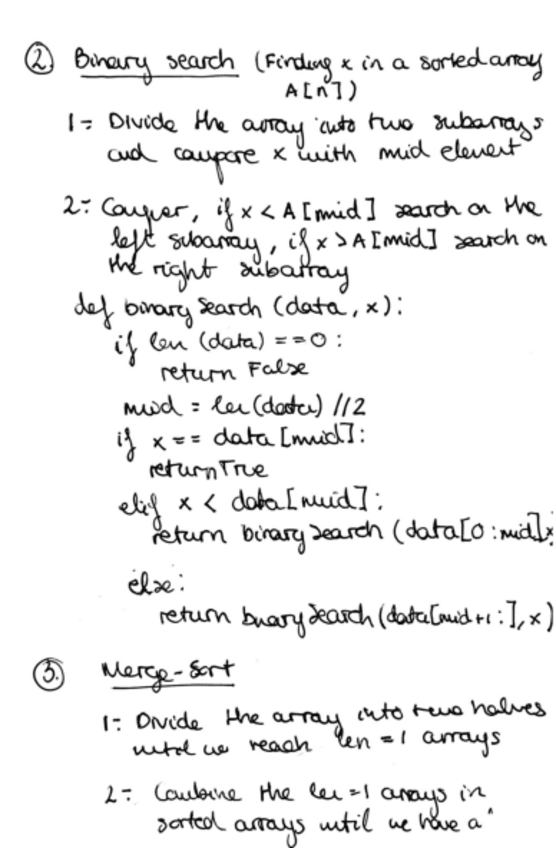 ② Binary search (Finding x in a sorted array
A[n])
1- Divide the array into two subarrays
and compare x with mid element
2- Conquer, if x < A[mid] search on the
left subarray, if x > A[mid] search on
the right subarray
def binary Search (data, x):
if len (data) == 0:
return False
mid = len(data) //2
if x == data [mid]:
return True
elif x < data[mid]:
return binary Search (data[0:mid],x
else:
return binary Search (data[mid+1:],x)
③. Merge-Sort
1- Divide the array into two halves
until we reach len = 1 arrays
2- Combine the len=1 arrays in
sorted arrays until we have a